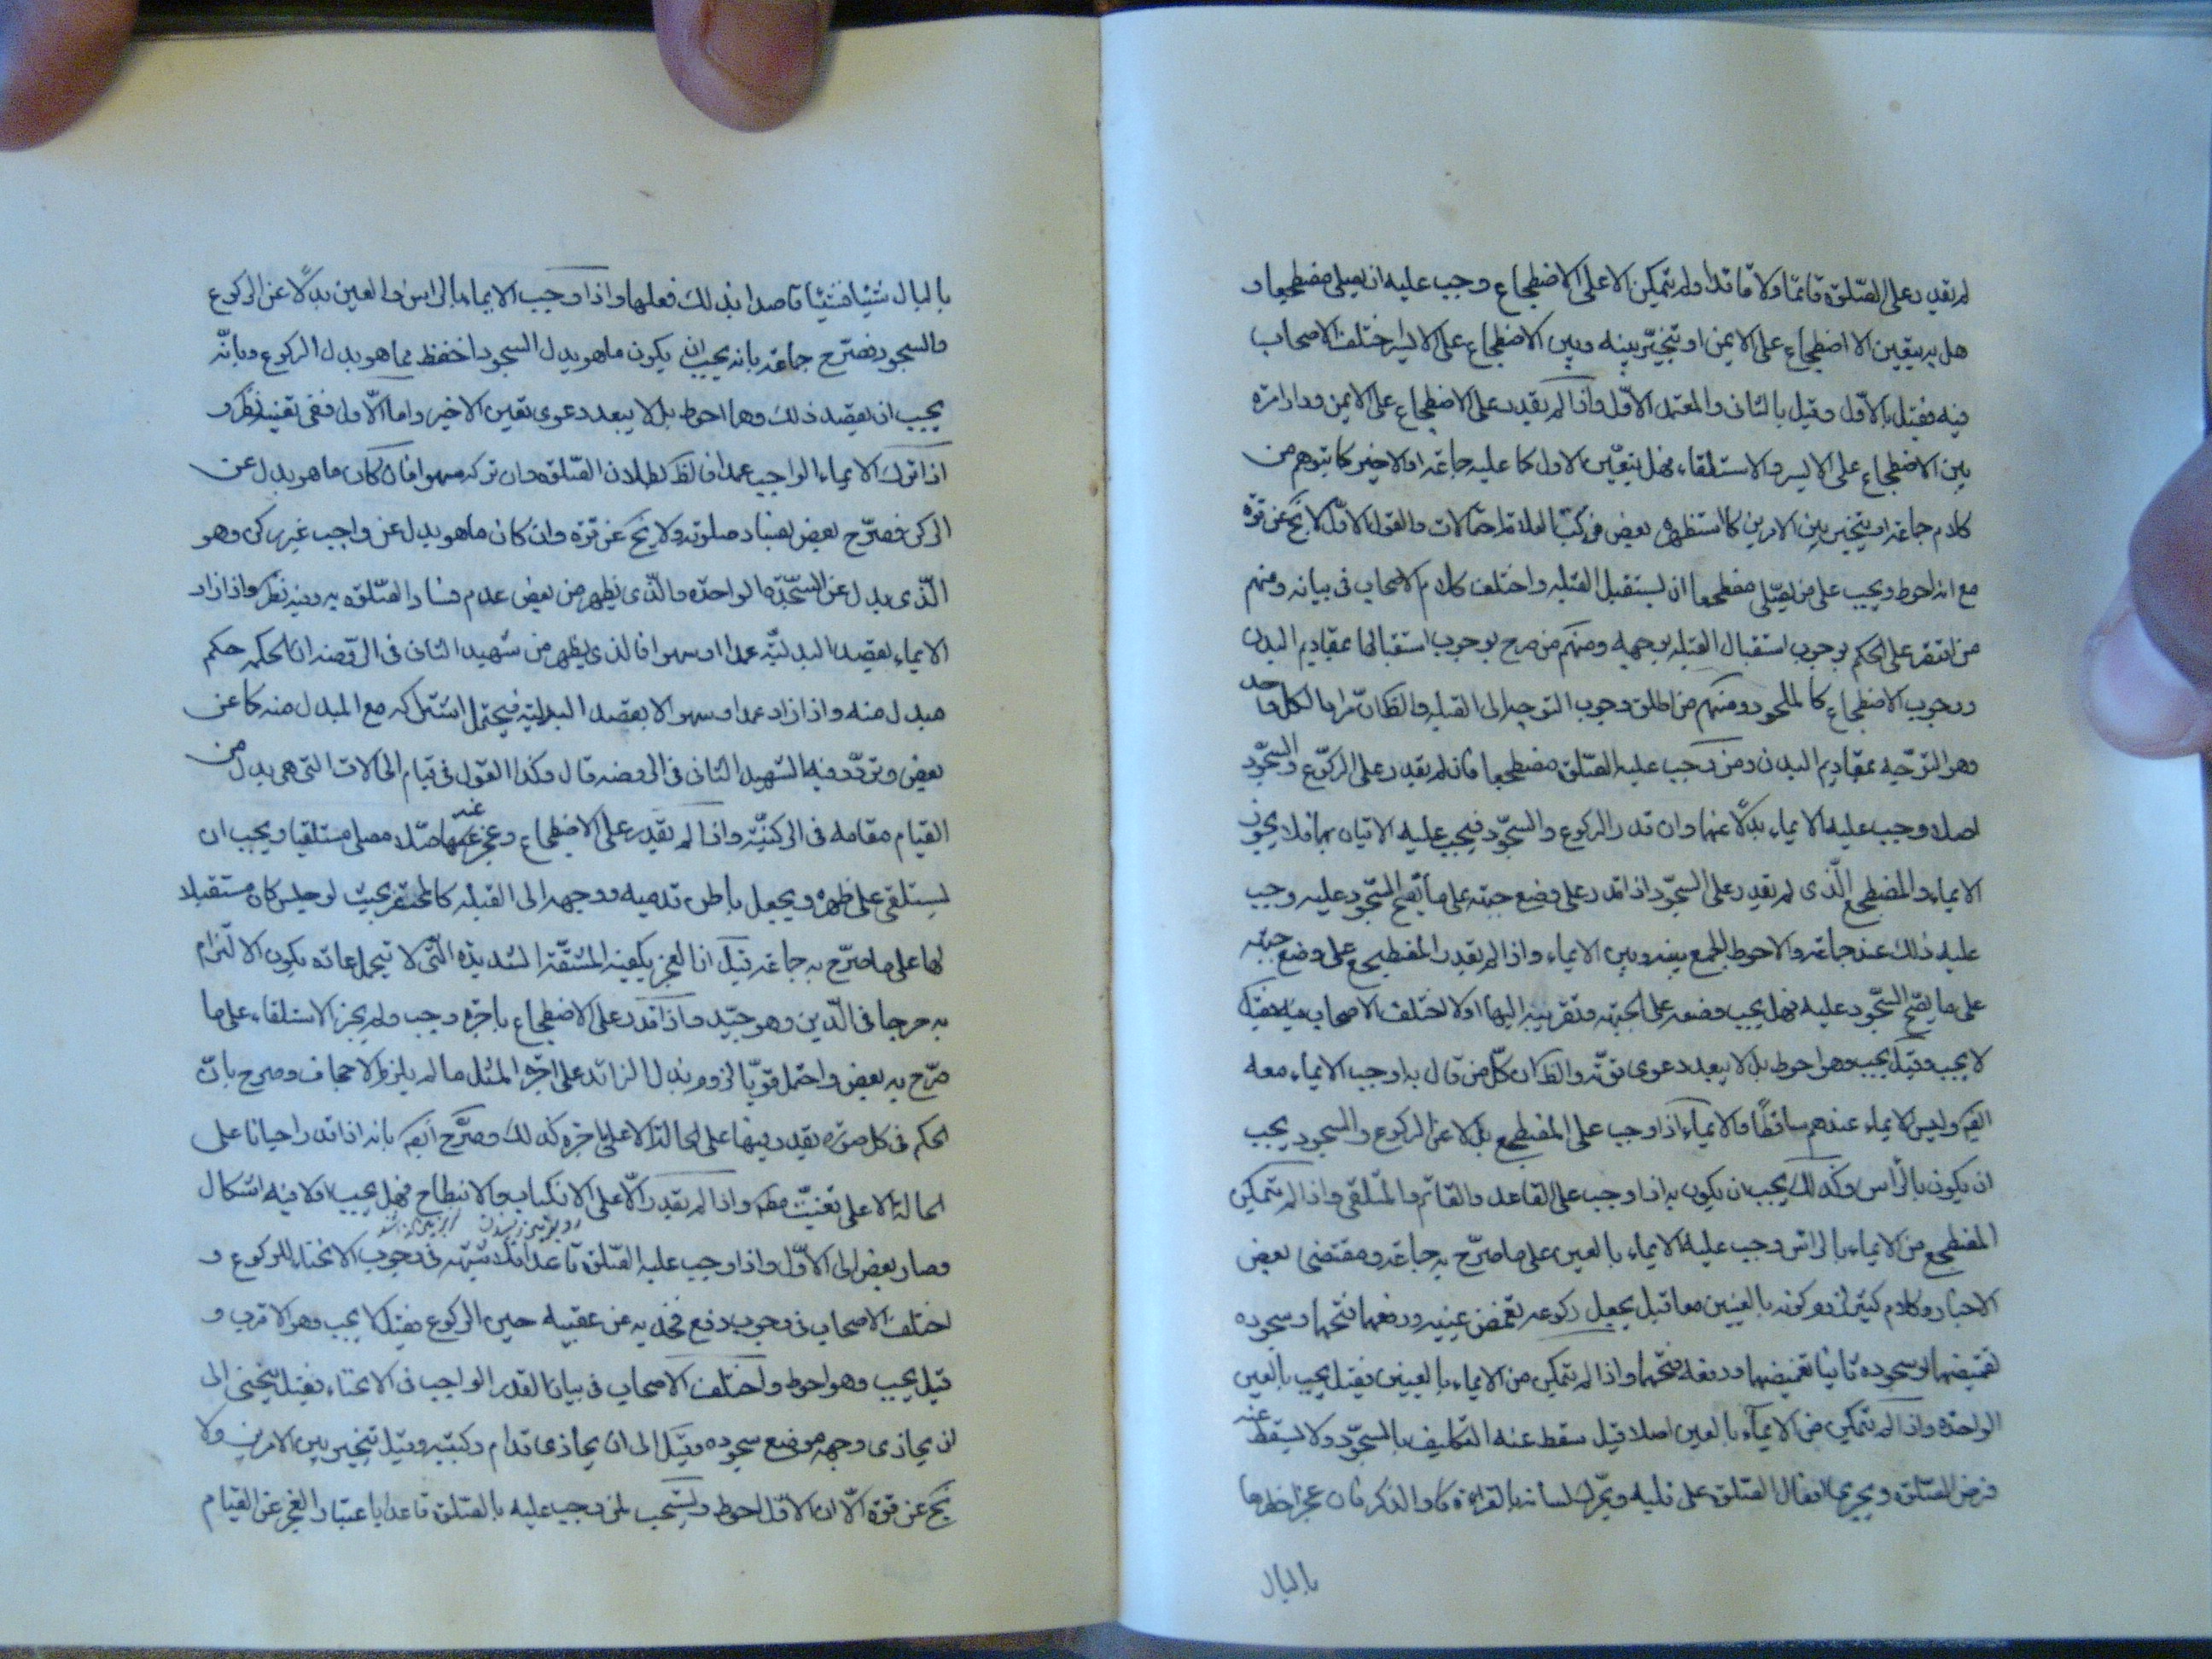 لم يقدر على الصّلوة قائمًا ولا قاعدا ولم يتمكين الا على الاضطجاع وجب عليه ان يصلى مضطجعا و
هل يتعيين الاضطجاع على الايمن او يتخيّر بينه وبين الاضطجاع على الايسر اختلف الاصحاب
فيه فقيل بالاوّل وقيل بالثانى والمعتمد الاوّل واذا لم يقدر على الاضطجاع على الايمن ودار امره
بين الاضطجاع على الايسر والاستلقاء فهل يتعيّن الاول كما عليه جماعة او الاخير كما يتوهم من
كلام جماعة او يتخير بين الامرين كما استظهره بعض فى كتب احتمالات والقول الاوّل لا يخ عن قوة
مع انه احوط ويجب على من يصلّى مضطجعا ان يستقبل القبله واختلف كلام الاصحاب فى بيانه ومنهم
من اقتصر على الحكم بوجوب استقبال القبله بوجهه ومنهم من صرح بوجوب استقبالها بمقاديم البدن
ووجوب الاضطجاع كالملحود ومنهم من اطلق وجوب التوجه الى القبله والظ ان مراد الكل واحد
وهو التوجّه بمقاديم البدن ومن وجب عليه الصّلوة مضطجعا فان لم يقدر على الركوع والسّجود
اصلا وجب عليه الايماء بدلًا عنهما وان قدر الركوع والسّجود فيجب عليه الاتيان بهما فلا يجوز
الايماء والمضطجع الّذى لم يقدر على السجّود اذا قدر على وضع جبهته على ما يصّح السّجود عليه وجب
عليه ذلك عند جماعة والاحوط الجمع بينه وبين الايماء واذا لم يقدر المضطجع على وضع جبهته
على ما يصّح السّجود عليه فهل يجب وضعه على الجبهة وتقريبه اليها اولا اختلف الاصحاب فيه فقيل
لا يجب وقيل يجب وهو احوط بل لا يبعد دعوى قوّته والظ ان كلّ من قال به اوجب الايماء معه
ايضا وليس الايماء عندهم ساقطًا والايماء اذا وجب على المضطجع بدلا عن الركوع والسجود يجب
ان يكون بالرّاس وكذلك يجب ان يكون به اذا وجب على القاعد والقائم والمستلقى واذا لم يتمكين
المضطجع من الايماء بالراس وجب عليه الايماء بالعين على ما صرّح به جماعة ومقتضى بعض
الاخبار وكلام كثير لزوم كونه بالعينين معا قيل يجعل ركوعه تغميض عينيه ورفعهما فتحهما وسجوده
تغميضهما وسجوده ثانيا تغميضهما ورفعه فتحهما واذا لم يتمكين من الايماء بالعينين فقيل يجب بالعين
الواحدة واذا لم يتمكين من الايمآء بالعين اصلا قيل سقط عنه التكليف بالسجّود ولا يسقط عنه
فرض الصّلوة ويجرى افعال الصّلوة على قلبه ويحّرك لسانه بالقراءة والذكر فان عجز اخطرها
بالبال
بالبال شيئا فشيئا قاصدا بذلك فعلها واذا وجب الايماء بالراس او العين بدلًا عن الركوع
والسجود فصّرح جماعة بانه يجب ان يكون ما هو بدل السجود اخفظ مما هو بدل الركوع وبانّه
يجب ان يقصد ذلك وهما احوط بل لا يبعد دعوى تعين الاخير واما الاّول ففى تعينه نظر و
اذا ترك الايماء الواجب عمدا فالظ بطلان الصّلوة وان تركه سهوا فان كان ما هو بدل عن
الركن فصرّح بعض بفساد صلوته ولا يخ عن قوة وان كان ما هو بدل عن واجب غير ركن وهو
الّذى بدل عن السّجدة الواحدة والّذى يظهر من بعض عدم فساد الصّلوة به وفيه نظر واذا زاد
الايماء بقصد البدليّة عمدا او سهوا فالذى يظهر من شهيد الثانى فى الروضه ان الحكمه حكم
مبدل منه واذا زاد عمدا وسهوا لا بقصد البدلية فيحتمل اشتراكه مع المبدل منه كما عن
بعض وتردّد فيه الشهيد الثانى فى الروضه قال وكذا القول فى قيام الحالات التى هى بدل من
القيام مقامه فى الركنيّة واذا لم يقدر على الاضطجاع وعجز عنه اصّلا مصلى مستلقيا ويجب ان
يستلقى على ظهره ويجعل باطن قدميه ووجهه الى القبله كالمحتضر بحيث لو جلس كان مستقبلا
لها على ما صرّح به جماعة قيل ان العجز يكفيه المشقّة الشديدة الّتى لا يتحمل عادة بكون الالتزام
به حرجا فى الدّين وهو جيّد واذا قدر على الاضطجاع باجرة وجب ولم يجز الاستلقاء على ما
صّرح به بعض واحتمل قويّا لزوم بذل الزائد على اجرة المثل ما لم يلزم الاجحاف وصرح بانّ
الحكم فى كل صورة يقدر فيها على الحالة الاعلى باجرة كذلك وصرّح ايضا بانه اذا قدر احيانا على
الحالة الاعلى تعيّنت واذا لم يقدر الّا على الانكباب والانبطاح فهل يجب اولا فيه اشكال
وصار بعض الى الاوّل واذا وجب عليه الصّلوة قاعدا فلا شبهة فى وجوب الانحناء للركوع و
اختلف الاصحاب فى وجوب رفع فخذيه عن عقبيه حين الركوع فقيل لا يجب وهو الاقرب و
قيل يجب وهو احوط واختلف الاصحاب فى بيان القدر الواجب فى الانحناء فقيل ينحنى الى
ان يحاذى وجهه موضع سجوده وقيل الى ان يحاذى قدام ركبتيه وقيل يتخير بين الامرين ولا
يخ عن قوة الّا ان الاوّل احوط ويستحب لمن وجب عليه بالصّلوة قاعدا باعتبار العجز عن القيام